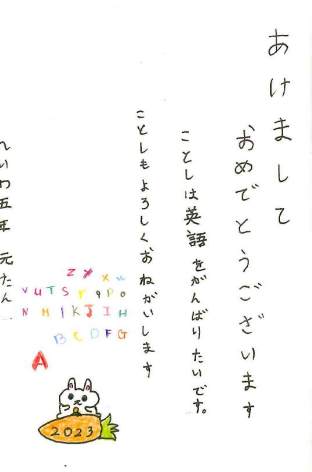 あけまして
おめでとうございます
ことしは英語をがんばりたいです。
ことしもよろしくおねがいします
れいわ五年 元たん
Z Y X W
V U T S r q P O
N M l K J I H
B C D F G
A
2023